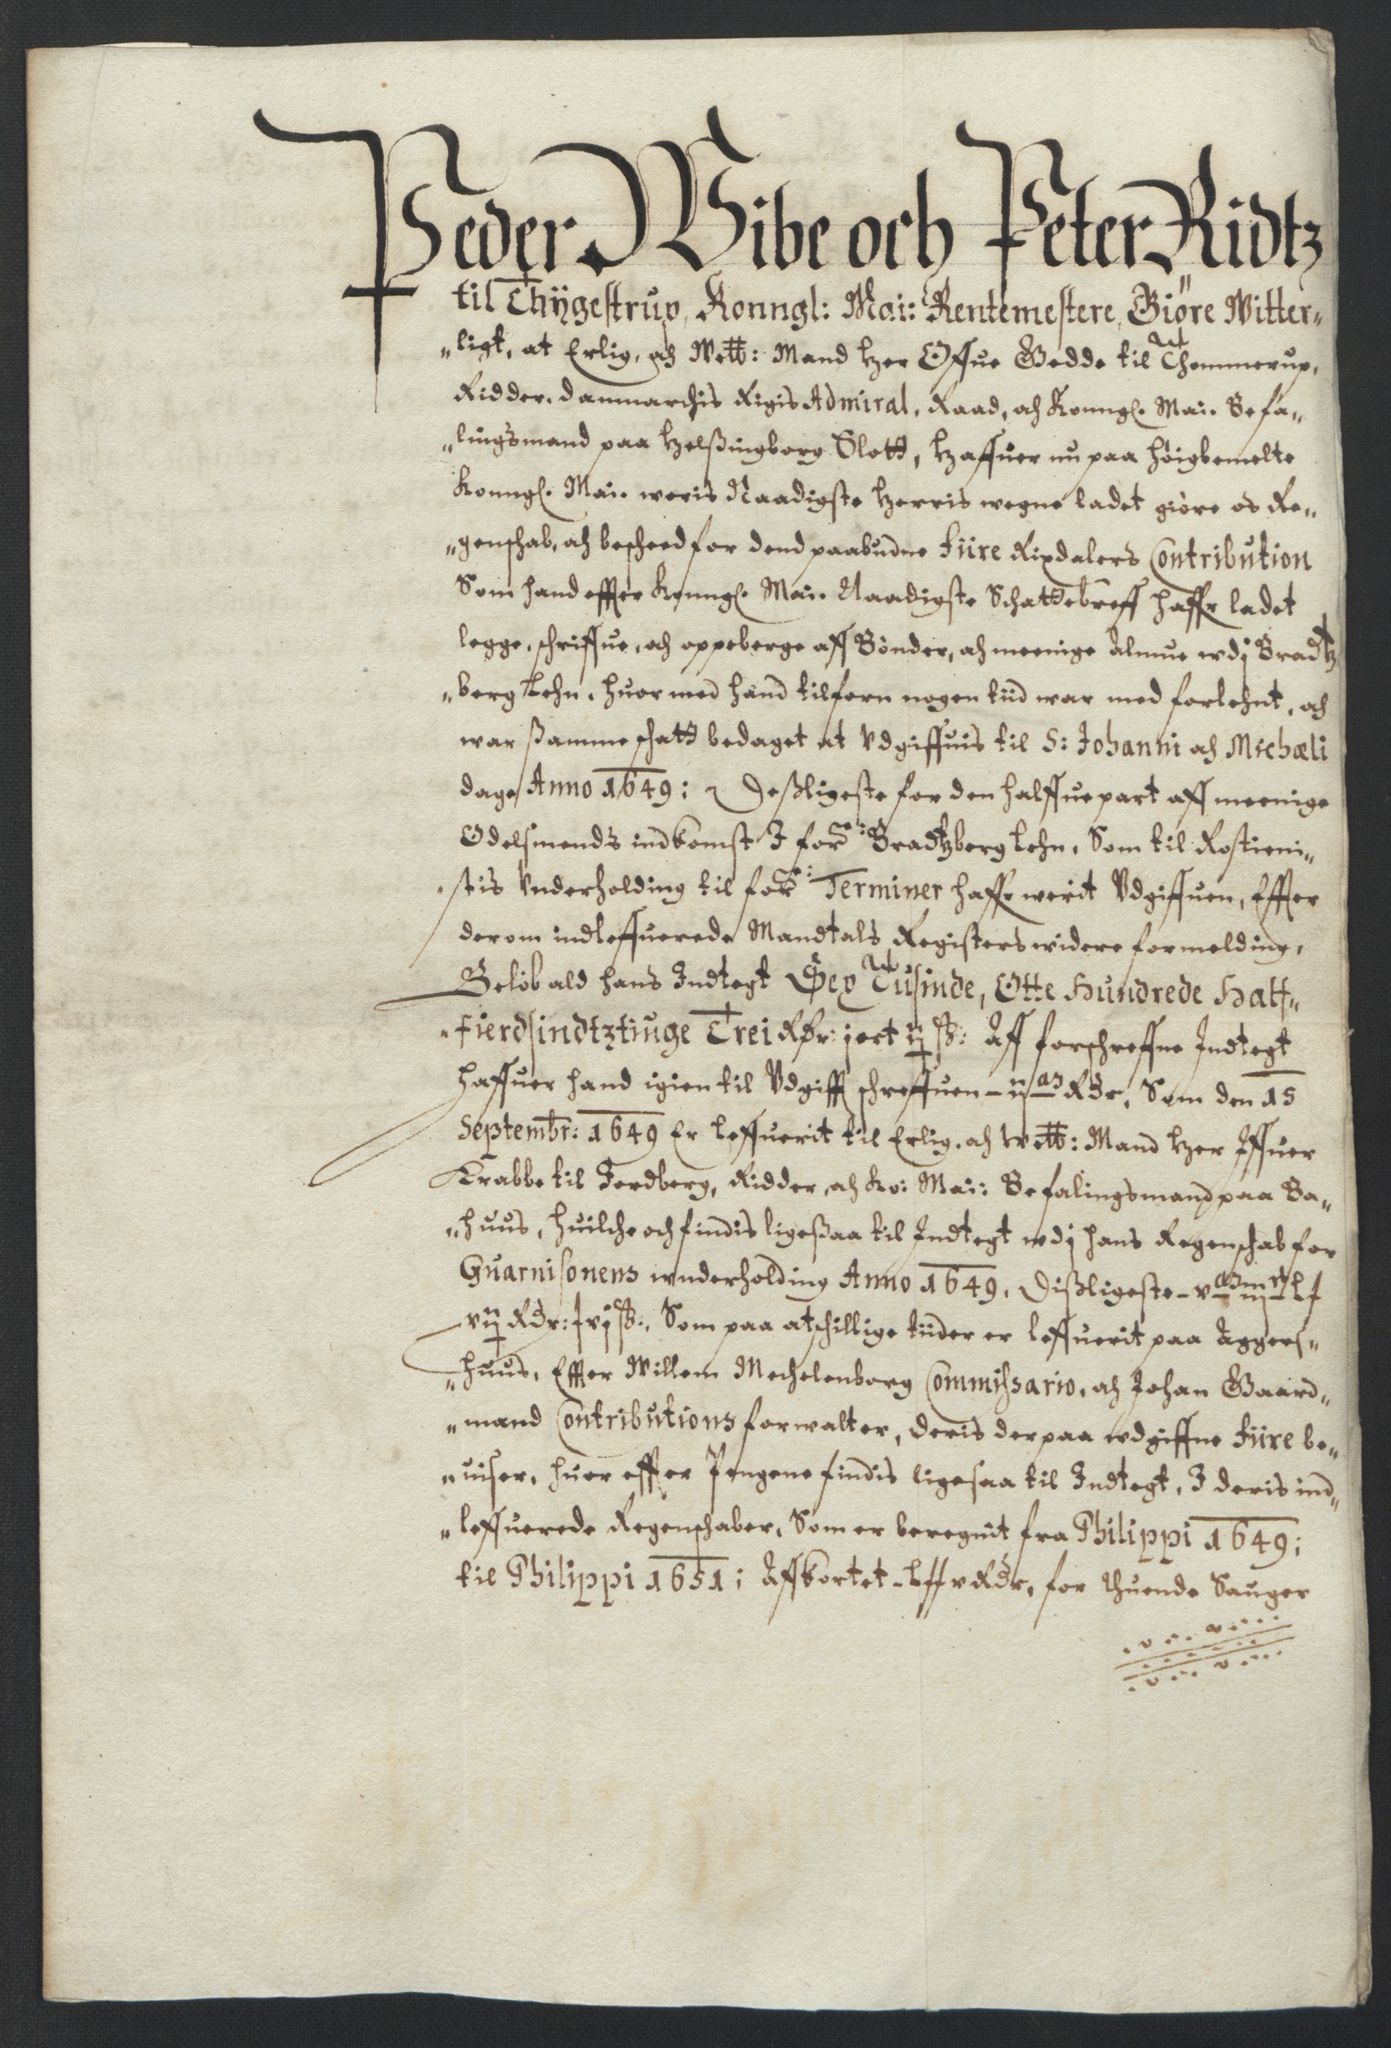 Peder Wibe och Peter Ridtz
til Thÿgestrup, Konngl: Mai: Rentemestere, Giöre Witter-
ligt, at Erlig, och Welb: Mand Her Offue Gedde til Thommerup,
Ridder, Danmarchis Rigis Admiral, Raad, och Konngl. Mai. Befa-
lingsmand paa Helßingborg Slott, Haffuer nu paa höigbemelte
Konngl. Mai. woris Naadigste Herris wegne ladet giöre os Re-
genschab, och bescheed for dend paabudne fiire Rixdalers Contribution
Som hand effter Konngl. Mai. Naadigste Schattebreff haffr ladet
legge, schriffue, och oppeberge aff Bönder, och meenige Almue wdj Bradtz
berg Lehn, huormed hand tilforn nogen tiid war med forlehnt, och
war ßamme schatt bedaget at Vdgiffuis til S: Johanni och Michæli
dage Anno 1649; Deßligeste for den halffuepart aff meenige
Odelsmends indkomst J forne: Bradtzberg Lehn, Som til Rostieni-
stis Vnderholding til forne: Terminer haffr werit Vdgiffuen, Effter
derom indleffuerede Mandtals Registers widere formelding,
Belöb ald hans Indtegt Sex Tusinde, Otte Hundrede Halt-
fierdsindtztiuge Trei Rdr: j ort ij ß: Aff forschreffne Indtegt
haffuer hand igien til Vdgifft schreffuen - ijm Rdr, Som den 15
Septembr: 1649 Er leffuerit til Erlig, och Welb: Mand Her Iffuer
Krabbe til Jerdberg, Ridder, och Ko: Mai: Befalingsmand paa Ba-
huus, huilche och findis ligeßaa til Indtegt wdj hans Regenschab for
Guarnisonens wnderholding Anno 1649, Dißligeste
vij Rdr: ß:, Som paa atschillige tiider er leffuerit paa Aggers-
huus, Effter Willem Mechelenborg Commissario, och Johan Gaard-
mand Contributions forwalter, deris derpaa wdgiffne fiire be-
uiser, huor effter Pengene findis ligesaa til Indtegt, J deris ind-
leffuerede Regenschaber, Som er beregnit fra Philippi 1649;
til Philippi 1651; Affkortet - Rdr, for thuende Sauger